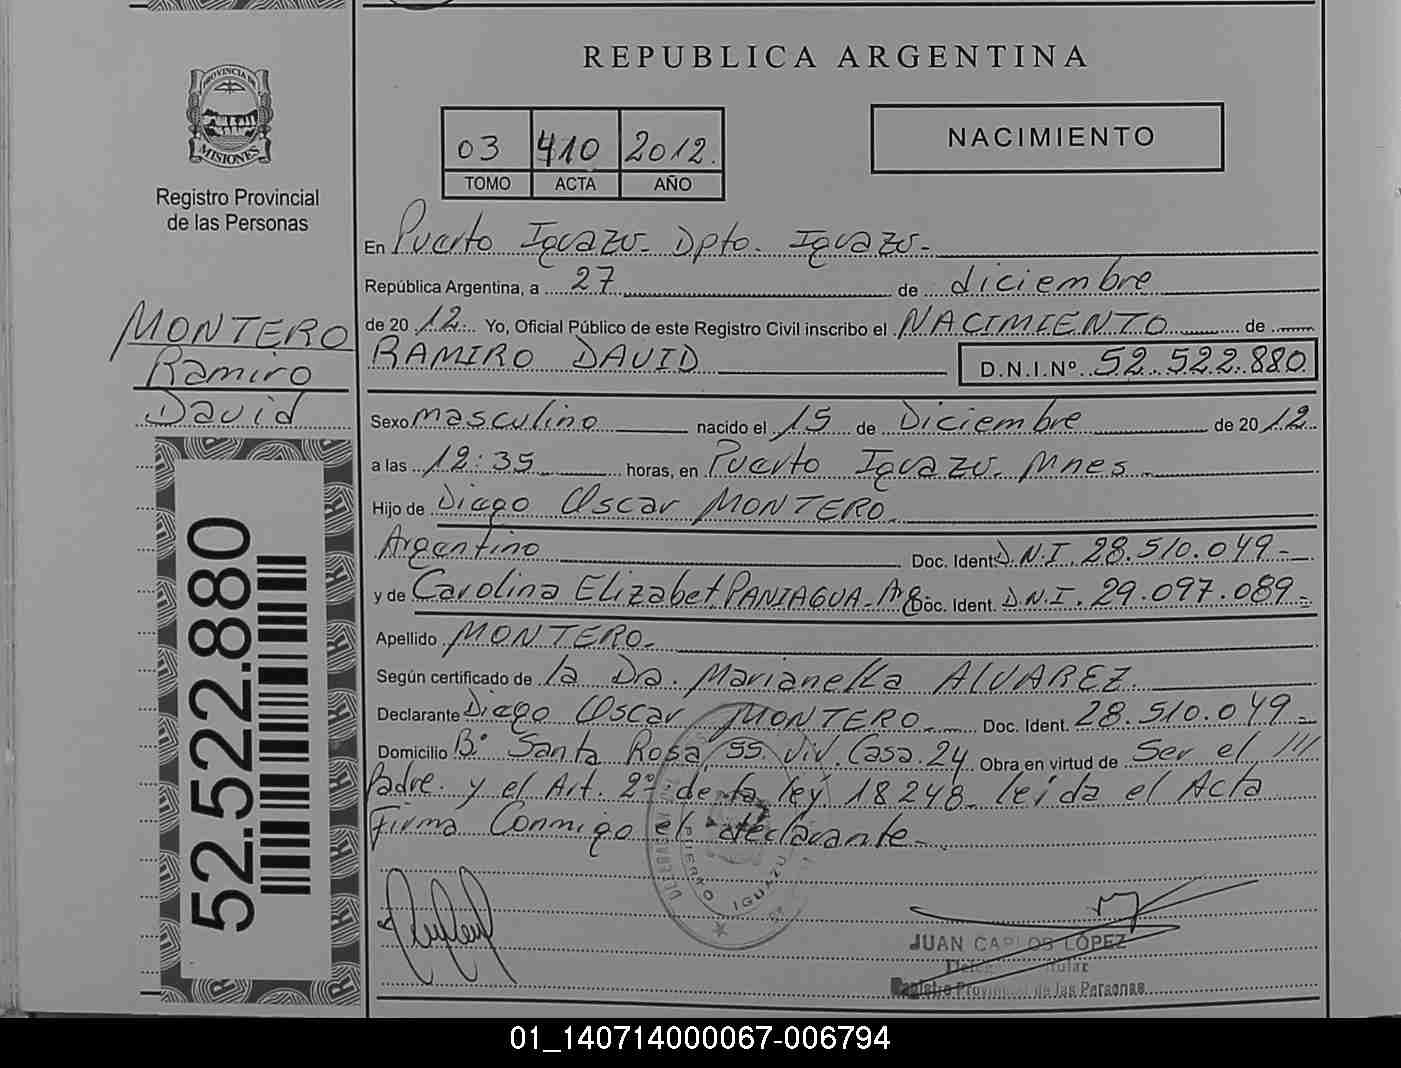 REPUBLICA ARGENTINA
PROVINCIA DE
MISIONES
Registro Provincial
de las Personas
03 410 2012.
TOMO ACTA AÑO
NACIMIENTO
En Puerto Iguazu- Dpto. Iguazu-
República Argentina, a 27 de diciembre
de 20 12. Yo, Oficial Público de este Registro Civil inscribo el NACIMIENTO de
RAMIRO DAVID D.N.I.Nº 52.522.880
MONTERO
Ramiro
David
Sexo masculino nacido el 15 de Diciembre de 20 12
a las 12:35 horas, en Puerto Iguazu. Mnes.
Hijo de Diego Oscar MONTERO
Argentino Doc. Ident. D.N.I. 28.510.049-
y de Carolina Elizabet PANIAGUA- Arg. Doc. Ident. D.N.I. 29.097.089-
Apellido MONTERO-
Según certificado de la Dra. Marianella ALVAREZ.
Declarante Diego Oscar MONTERO Doc. Ident. 28.510.049-
Domicilio Bº Santa Rosa, 55. viv. Casa. 24 Obra en virtud de Ser el ///
Padre. y el Art. 2º de la ley 18248- leida el Acta
Firma Conmigo el declarante-
52.522.880
PUERTO IGUAZU
JUAN CARLOS LOPEZ
Titular
Registro Provincial de las Personas
01_140714000067-006794